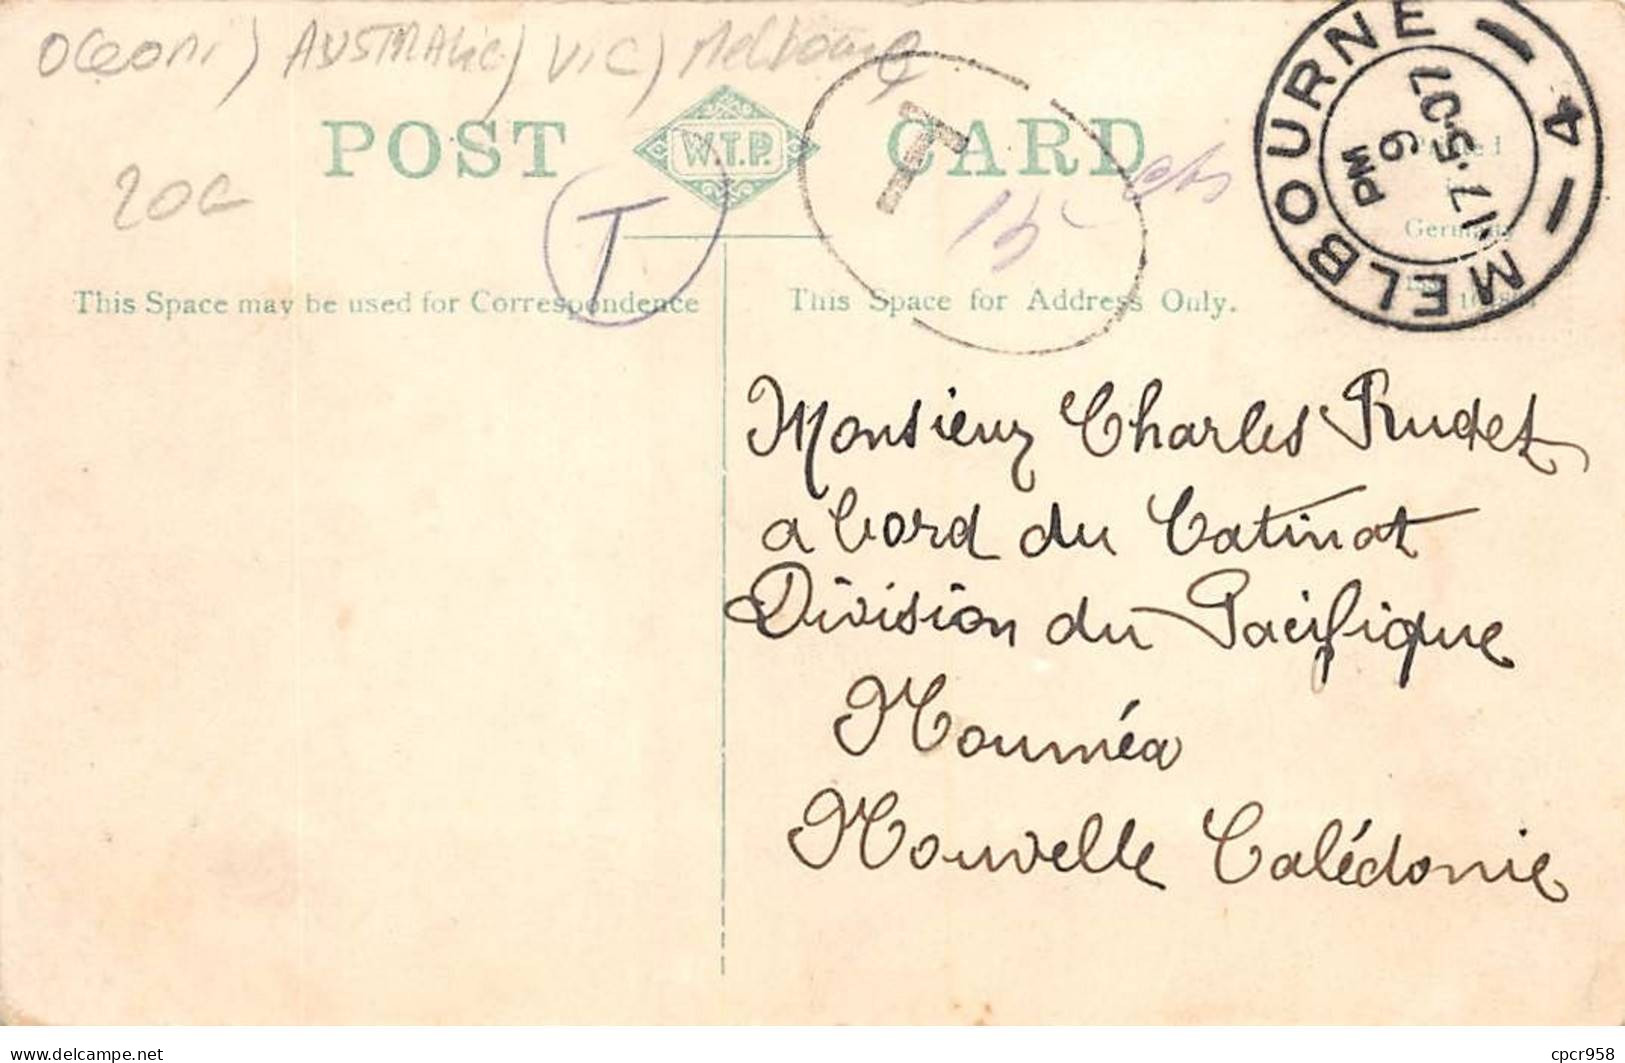 Oceani) AUSTRALie) VIC) Melbourne
POST W.T.P. CARD
20€
T
T
15 cts
MELBOURNE 4
PM
9
17.5.07
Germany
This Space may be used for Correspondence
This Space for Address Only.
Monsieur Charles Rudet
a bord du Catinat
Division du Pacifique
Nouméa
Nouvelle Calédonie
delcampe.net
cpcr958